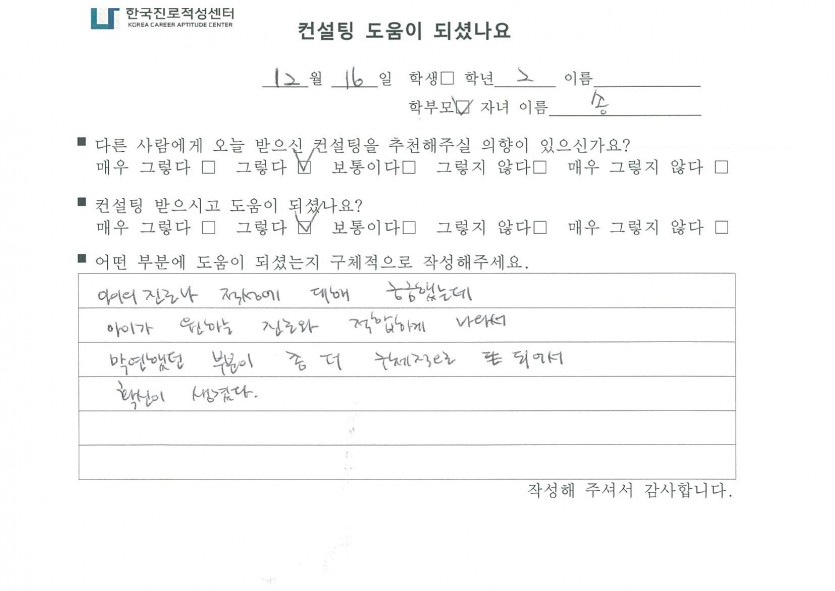 한국진로적성센터
KOREA CAREER APTITUDE CENTER
컨설팅 도움이 되셨나요
12월 16일 학생□ 학년 2 이름
학부모☑ 자녀 이름 송
■ 다른 사람에게 오늘 받으신 컨설팅을 추천해주실 의향이 있으신가요?
매우 그렇다 □ 그렇다 ☑ 보통이다□ 그렇지 않다□ 매우 그렇지 않다 □
■ 컨설팅 받으시고 도움이 되셨나요?
매우 그렇다 □ 그렇다 ☑ 보통이다□ 그렇지 않다□ 매우 그렇지 않다 □
■ 어떤 부분에 도움이 되셨는지 구체적으로 작성해주세요.
진로나 적성에 대해 궁금했는데
아이가 원하는 진로와 적합하게 나와서
막연했던 부분이 좀 더 구체적으로 되어서
확신이 생겼다.
작성해 주셔서 감사합니다.